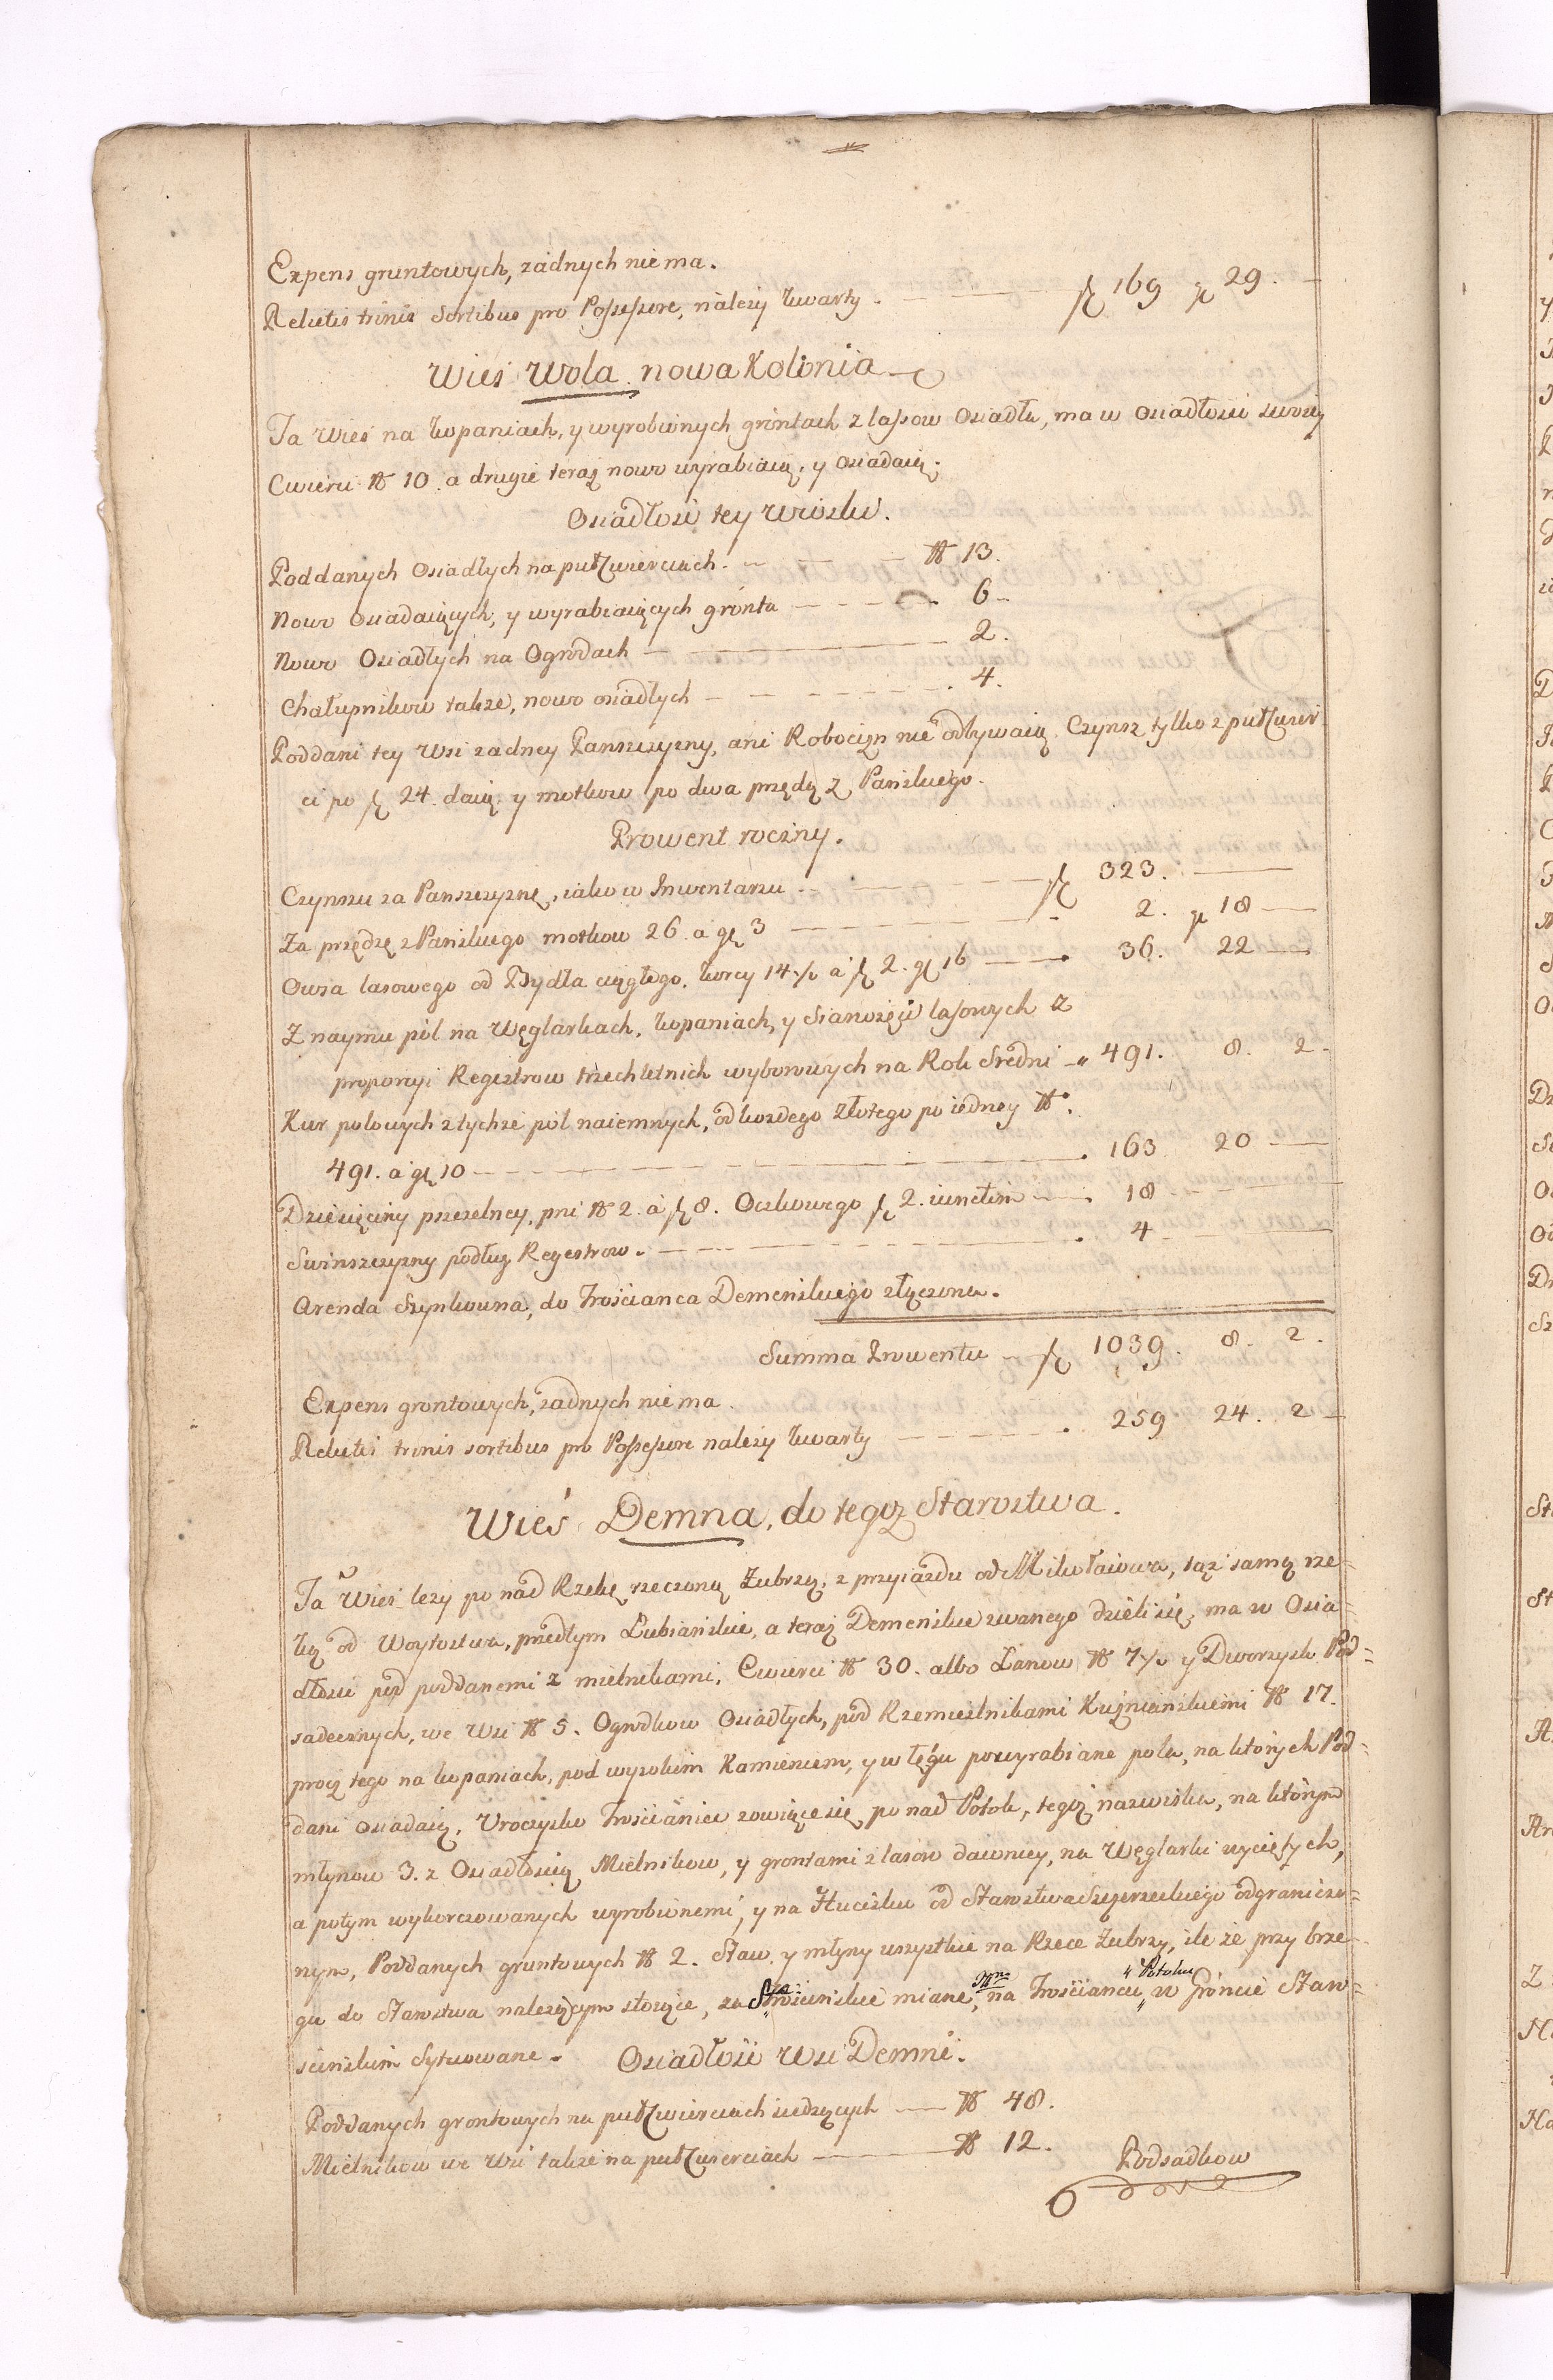 Expens gruntowych, żadnych niema.
Relictis trinis Sortibus pro Possessore, należy kwarty. — fl 169 gr 29.
Wieś Wola nowa Kolonia
Ta Wieś na kopaniach, y wyrobionych gróntach z lassow Osiadła, ma w Osiadłości swoiey
Cwierci N 10. a drugie teraz nowo wyrabiaią, y osiadaią.
Osiadłość tey Wioski.
Poddanych Osiadłych na puł Cwierciach. — N 13.
Nowo Osiadaiących, y wyrabiaiących grónta — 6 —
Nowo Osiadłych na Ogrodach — 2.
Chałupnikow także, nowo osiadłych — 4.
Poddani tey Wsi żadney Panszczyzny, ani Robocizn nie odbywaią. Czynsz tylko z puł Cwier
ci po fl 24. daią, y motkow po dwa przędą z Pańskiego.
Prowent roczny.
Czynszu za Panszczyznę, iako w Inwentarzu. — fl 323.
Za przędzę z Pańskiego motkow 26. a gr 3 — 2. gr 18
Owsa lasowego od Bydła ciągłego, korcy 14 ½ a fl 2. gr 16 — 36. 22
Z naymu pól na Węglarkach, kopaniach, y Sianożęć lasowych z
proporcyi Regestrow trzechletnich wyborowych na Rok Sredni — 491. 8. 2.
Kur polowych z tychże pól naiemnych, od każdego Złotego po iedney N.
491. a gr 10 — 163. 20
Dziesięciny pszczelney, pni N 2. a fl 8. Oczkowego fl 2. iunctim — 18
Swinszczyzny podług Regestrow. — 4
Arenda Szynkowna, do Trościanca Demeńskiego złączona.
Summa Prowentu — fl 1039. 8. 2.
Expens grontowych, żadnych niema.
Relictis trinis sortibus pro Possessore należy kwarty — 259 24. 2
Wieś Demna, do tegoż Starostwa.
Ta Wieś leży ponad Rzekę rzeczoną Zubrzą, z przyiazdu od Mikołaiowa, tąż samą rze=
ką od Woytostwa, przedtym Lubiańskie, a teraz Demeńskie zwanego dzieli się, ma w Osia=
dłości pod poddanemi z mielnikami, Cwierci N 30. albo Łanow N 7 ½ y Dworzysk Pod=
sadecznych, we Wsi N 5. Ogrodkow Osiadłych, pod Rzemieslnikami Kuźnieńskiemi N 17.
procz tego na kopaniach, pod wysokim Kamieniem, y w Łęgu powyrabiane pola, na ktorych Pod=
dani osiadaią, Uroczysko Trościaniec zowiące się, ponad Potok, tegoż nazwiska, na ktorym
młynow 3. z Osiadłością Mielnikow, y grontami z lasow dawniey, na Węglarki wyciętych,
a potym wykorczowanych wyrobionemi, y na Hucisku od Starostwa Szczerzeckiego odgranicze=
nym, Poddanych gruntowych N 2. Staw, y młyny wszystkie na Rzece Zubrzy, ile że przy brze=
gu do Starostwa należącym stoiące, za Starościńskie miane, na Trościancu " Potoku " w Gróncie Staro=
ścińskim Sytuowane.
Osiadłość Wsi Demni.
Poddanych grontowych na puł Cwierciach siedzących — N 48.
Mielnikow we Wsi także na puł Cwierciach — N 12.
Podsadkow